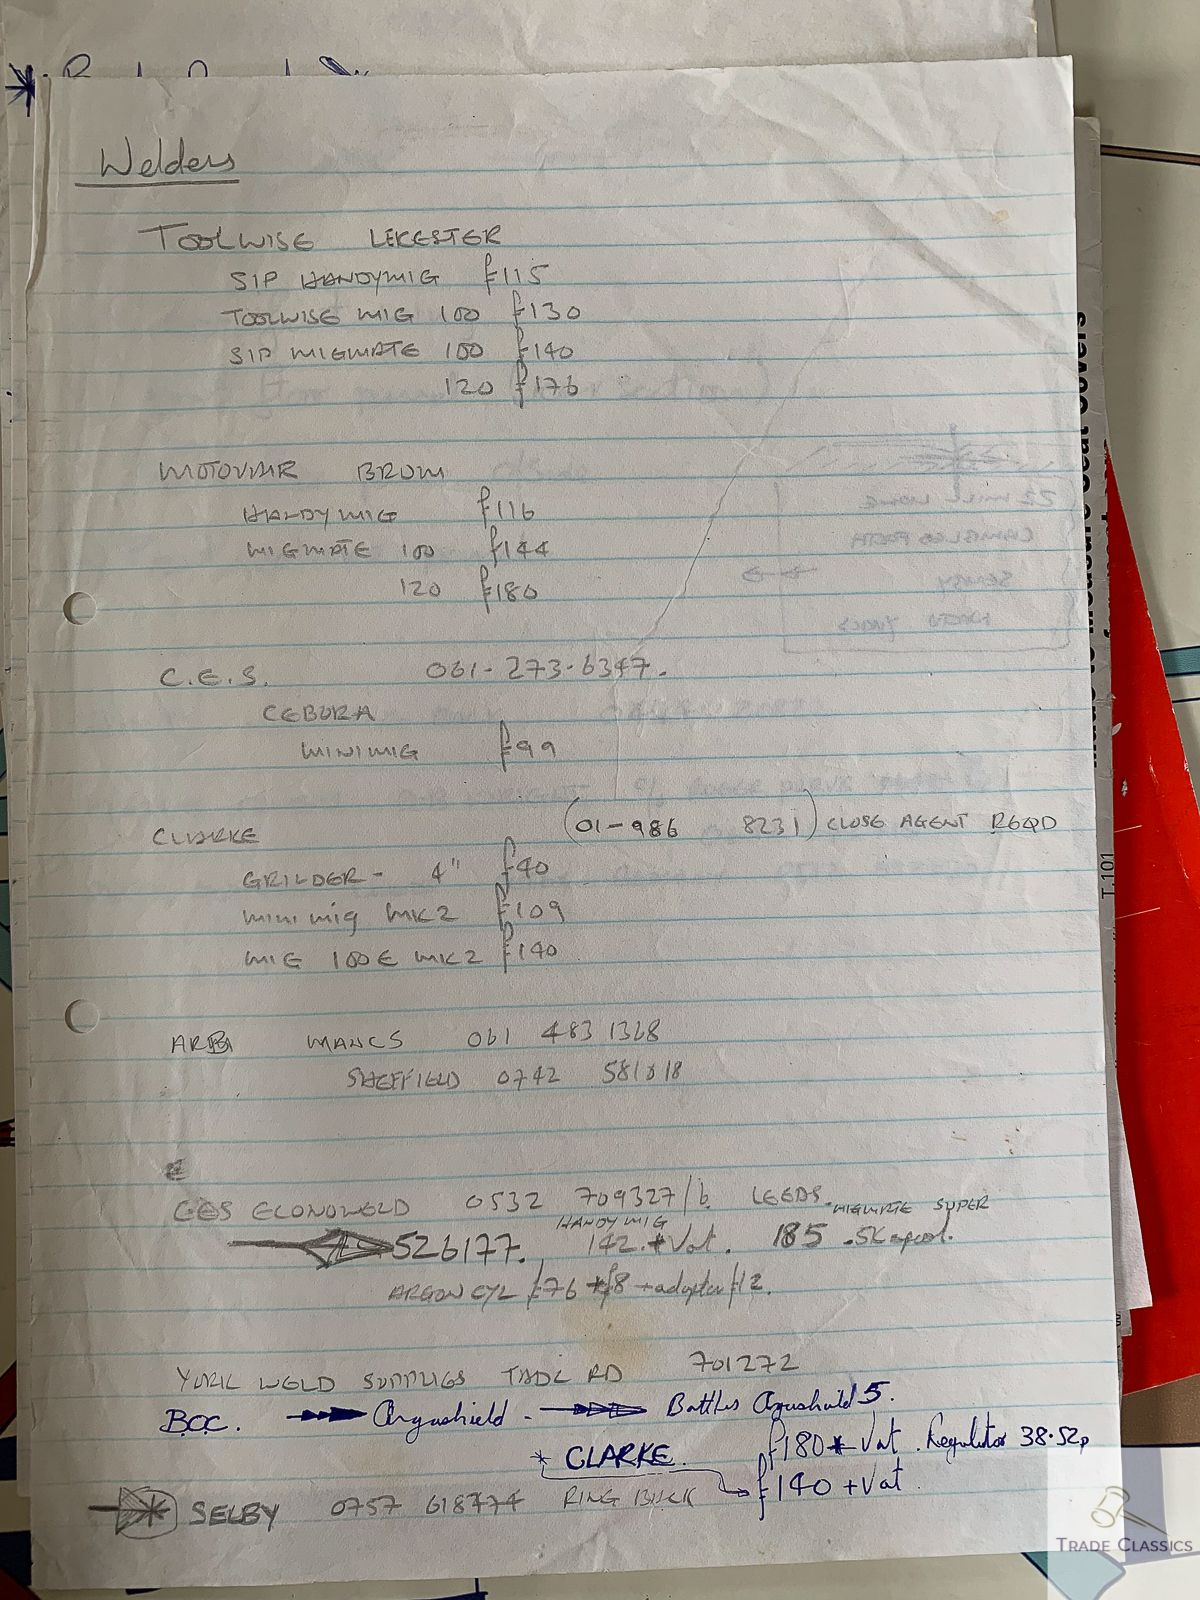 Welders
TOOLWISE LEICESTER
SIP HANDYMIG £115
TOOLWISE MIG 100 £130
SIP MIGMATE 100 £140
120 £176
BRUM
HANDYMIG £116
MIGMATE 100 £144
120 £180
C.E.S. 061-273-6347.
CEBORA
MINIMIG £99
CLARKE (01-986 8231) CLOSE AGENT REQD
GRINDER - 4" £40
MINI MIG MK2 £109
MIG 100E MK2 £140
MANCS 061 483 1368
SHEFFIELD 0742 581818
ECONOWELD 0532 709327/6 LEEDS.
HANDYMIG MIGMATE SUPER
526177. 142.+Vat. 185
ARGON CYL £76 +£8 + adapter £12.
YORK WELD SUPPLIES RD 701272
B.O.C. Argoshield. Bottles Argoshield 5.
* CLARKE. £180 + Vat. Regulator 38.52p
£140 + Vat.
* SELBY 0757 618774 RING BACK
Measure Seat Covers
T.101
TRADE CLASSICS